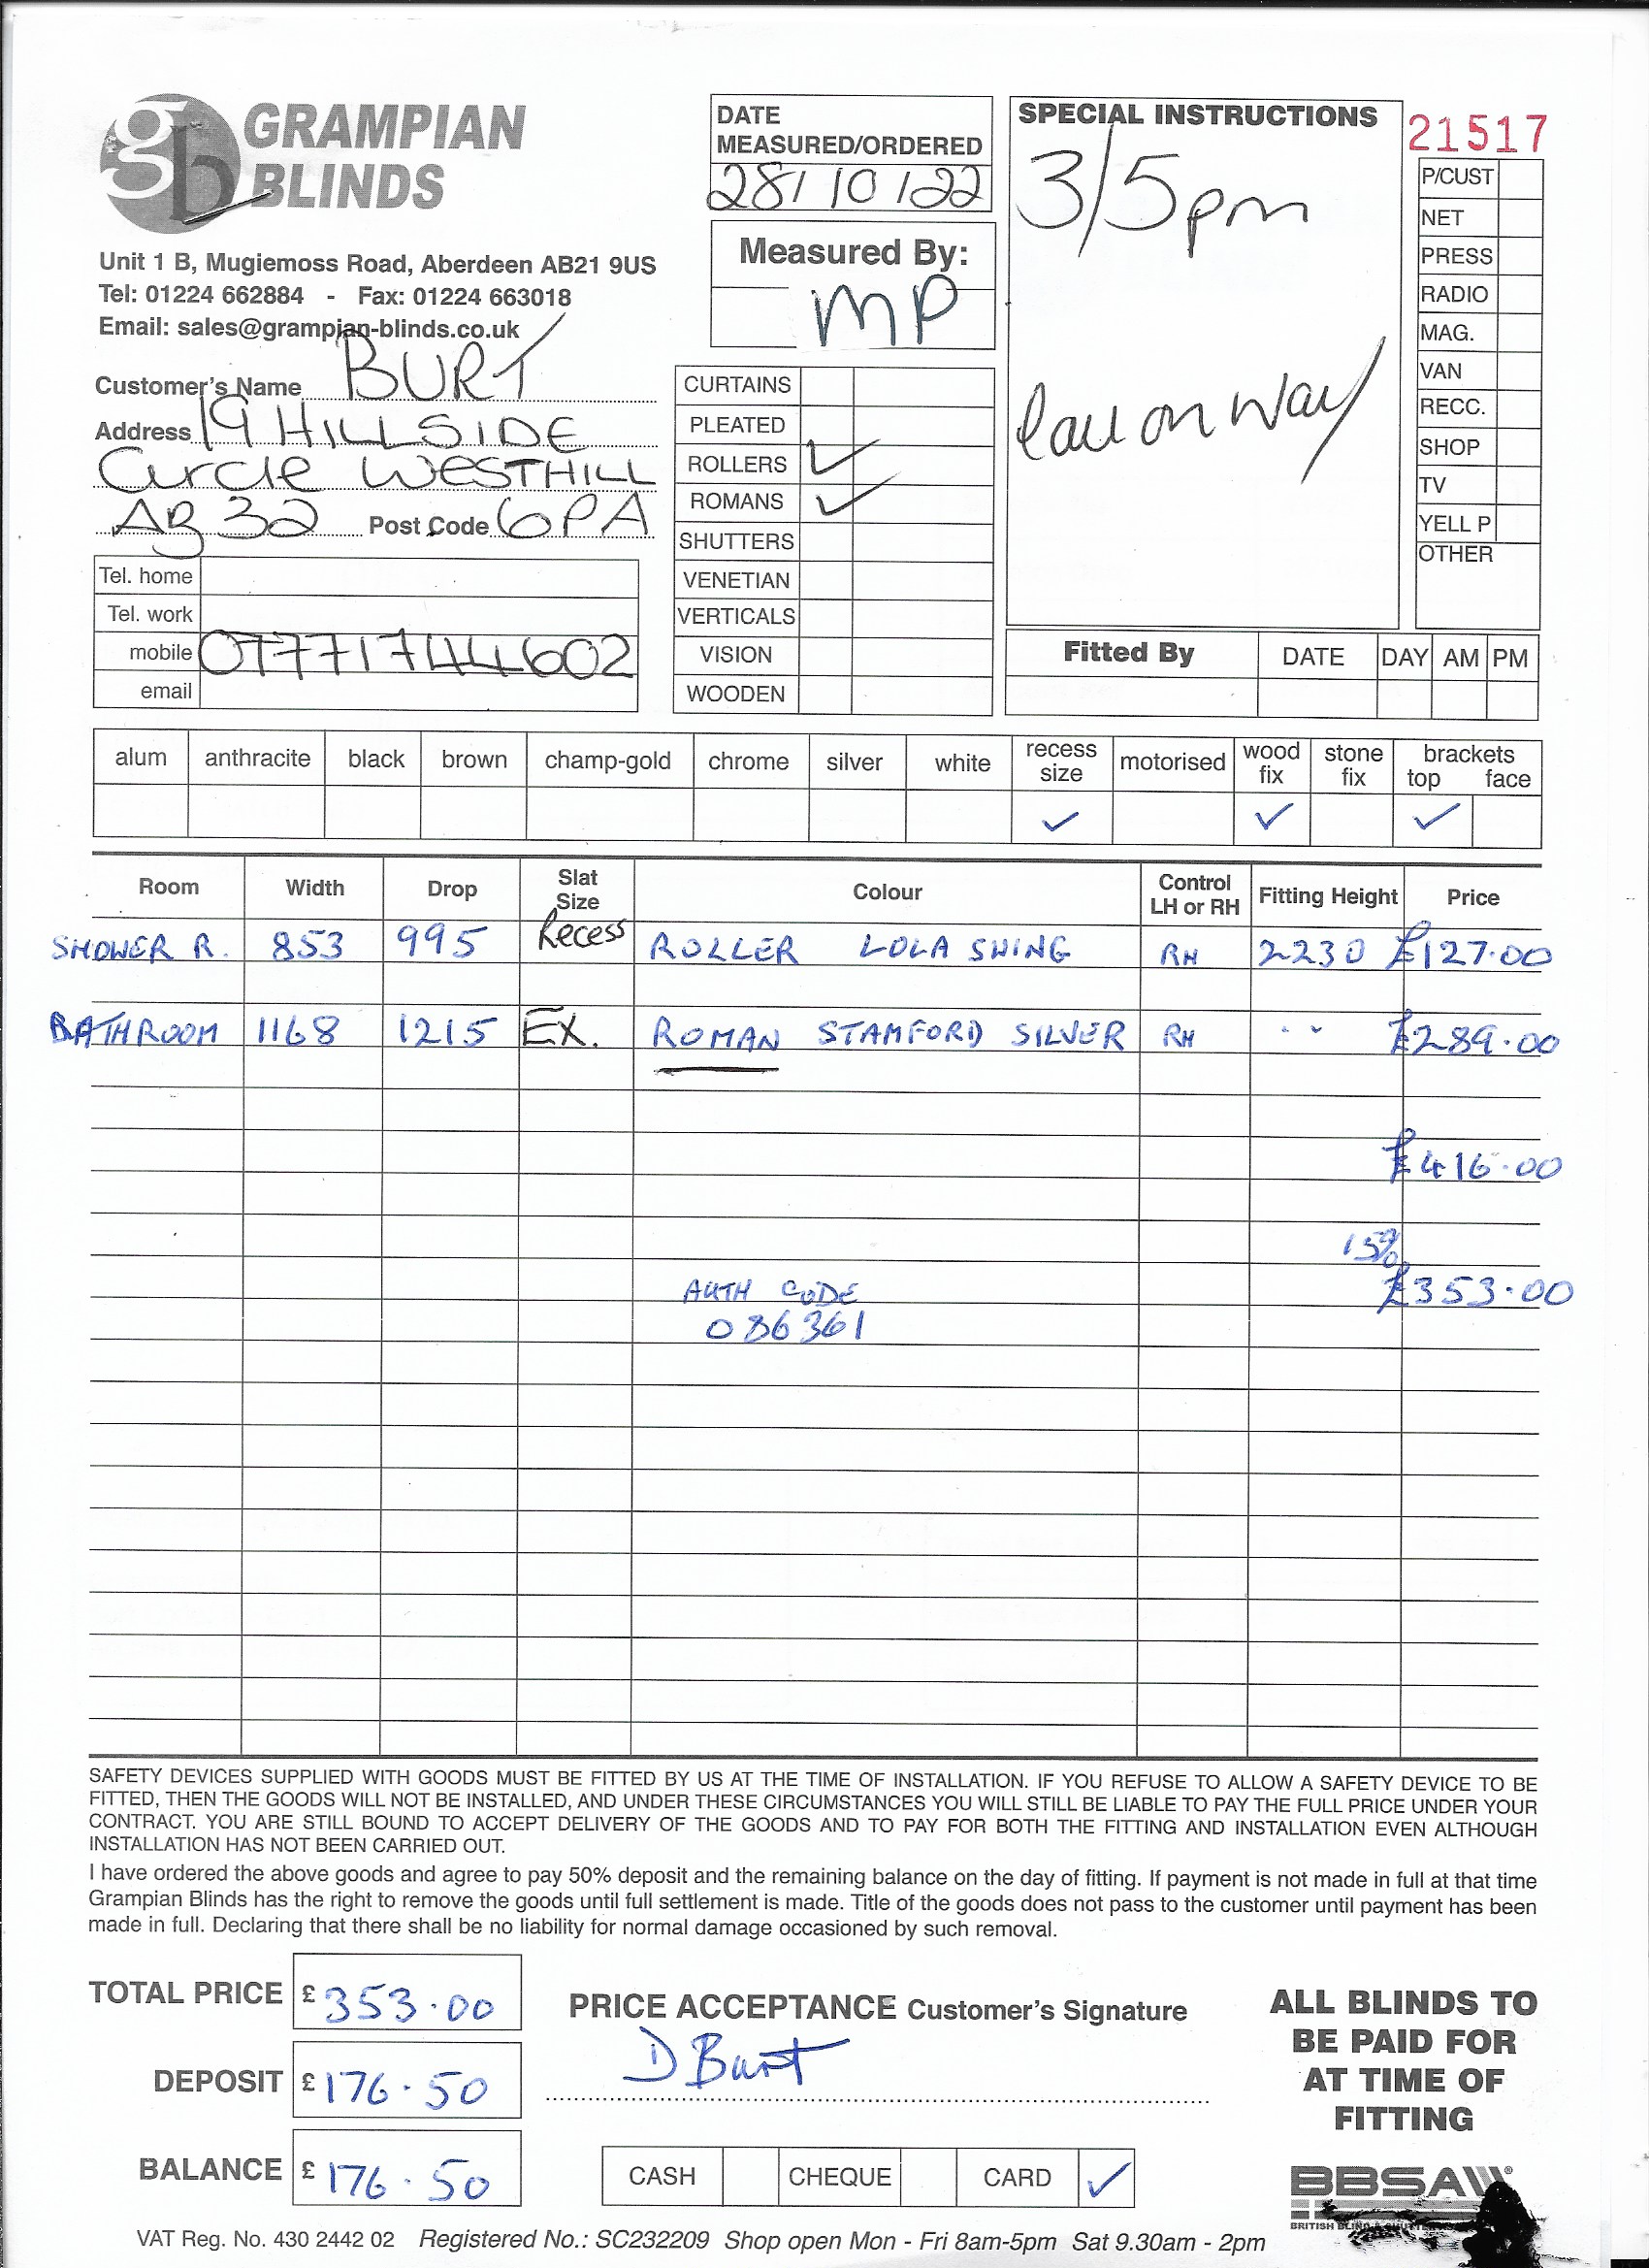 gb GRAMPIAN
BLINDS
Unit 1 B, Mugiemoss Road, Aberdeen AB21 9US
Tel: 01224 662884 - Fax: 01224 663018
Email: sales@grampian-blinds.co.uk
Customer's Name BURT
Address 19 HILLSIDE
Circle WESTHILL
AB32 Post Code 6PA
Tel. home
Tel. work
mobile 07771744602
email
DATE
MEASURED/ORDERED
28/10/22
Measured By:
MP
CURTAINS
PLEATED
ROLLERS ✓
ROMANS ✓
SHUTTERS
VENETIAN
VERTICALS
VISION
WOODEN
SPECIAL INSTRUCTIONS
3/5pm
Call on way
21517
P/CUST
NET
PRESS
RADIO
MAG.
VAN
RECC.
SHOP
TV
YELL P
OTHER
Fitted By DATE DAY AM PM
alum anthracite black brown champ-gold chrome silver white recess size motorised wood fix stone fix brackets top face
✓ ✓ ✓
Room Width Drop Slat Size Colour Control LH or RH Fitting Height Price
SHOWER R. 853 995 Recess ROLLER LOLA SWING RH 2230 £127.00
BATHROOM 1168 1215 EX. ROMAN STAMFORD SILVER RH " £289.00
£416.00
15%
AUTH CODE £353.00
086361
SAFETY DEVICES SUPPLIED WITH GOODS MUST BE FITTED BY US AT THE TIME OF INSTALLATION. IF YOU REFUSE TO ALLOW A SAFETY DEVICE TO BE
FITTED, THEN THE GOODS WILL NOT BE INSTALLED, AND UNDER THESE CIRCUMSTANCES YOU WILL STILL BE LIABLE TO PAY THE FULL PRICE UNDER YOUR
CONTRACT. YOU ARE STILL BOUND TO ACCEPT DELIVERY OF THE GOODS AND TO PAY FOR BOTH THE FITTING AND INSTALLATION EVEN ALTHOUGH
INSTALLATION HAS NOT BEEN CARRIED OUT.
I have ordered the above goods and agree to pay 50% deposit and the remaining balance on the day of fitting. If payment is not made in full at that time
Grampian Blinds has the right to remove the goods until full settlement is made. Title of the goods does not pass to the customer until payment has been
made in full. Declaring that there shall be no liability for normal damage occasioned by such removal.
TOTAL PRICE £353.00
DEPOSIT £176.50
BALANCE £176.50
PRICE ACCEPTANCE Customer's Signature
D Burt
CASH CHEQUE CARD ✓
ALL BLINDS TO
BE PAID FOR
AT TIME OF
FITTING
BBSA
BRITISH
VAT Reg. No. 430 2442 02 Registered No.: SC232209 Shop open Mon - Fri 8am-5pm Sat 9.30am - 2pm